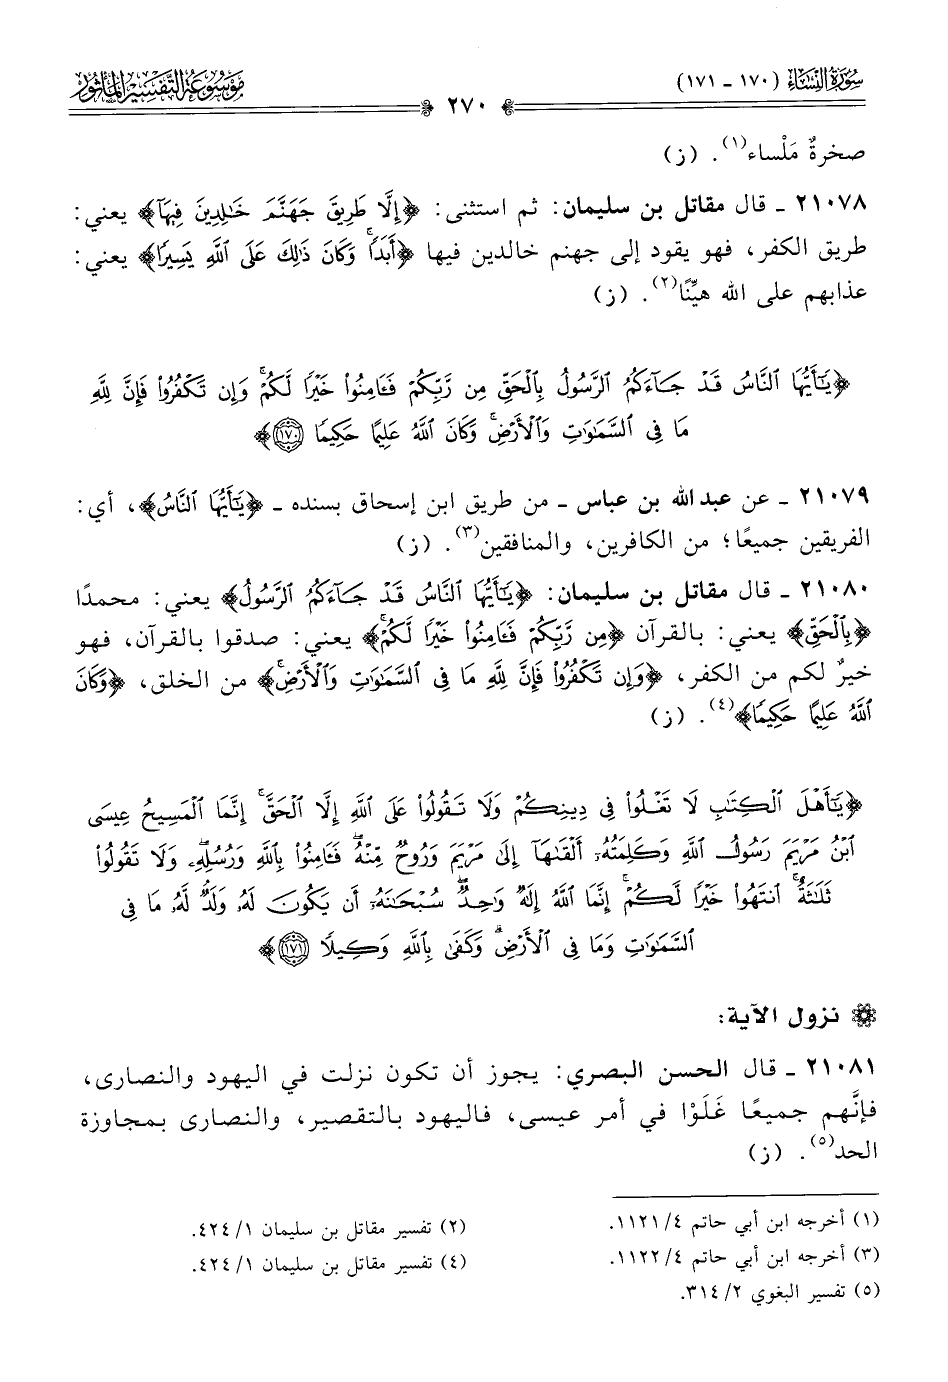 سُورَةُ النِّسَاءِ (١٧٠ - ١٧١)
٢٧٠
مَوْسُوعَةُ التَّفْسِيرِ المَأْثُورِ
صخرةٌ مَلْساء(١). (ز)
٢١٠٧٨ - قال مقاتل بن سليمان: ثم استثنى: ﴿إِلَّا طَرِيقَ جَهَنَّمَ خَٰلِدِينَ فِيهَآ﴾ يعني:
طريق الكفر، فهو يقود إلى جهنم خالدين فيها ﴿أَبَدًاۚ وَكَانَ ذَٰلِكَ عَلَى ٱللَّهِ يَسِيرًا﴾ يعني:
عذابهم على الله هيِّنًا(٢). (ز)
﴿يَٰٓأَيُّهَا ٱلنَّاسُ قَدْ جَآءَكُمُ ٱلرَّسُولُ بِٱلْحَقِّ مِن رَّبِّكُمْ فَـَٔامِنُوا۟ خَيْرًا لَّكُمْۚ وَإِن تَكْفُرُوا۟ فَإِنَّ لِلَّهِ
مَا فِى ٱلسَّمَٰوَٰتِ وَٱلْأَرْضِۚ وَكَانَ ٱللَّهُ عَلِيمًا حَكِيمًا ١٧٠﴾
٢١٠٧٩ - عن عبد الله بن عباس - من طريق ابن إسحاق بسنده - ﴿يَٰٓأَيُّهَا ٱلنَّاسُ﴾، أي:
الفريقين جميعًا؛ من الكافرين، والمنافقين(٣). (ز)
٢١٠٨٠ - قال مقاتل بن سليمان: ﴿يَٰٓأَيُّهَا ٱلنَّاسُ قَدْ جَآءَكُمُ ٱلرَّسُولُ﴾ يعني: محمدًا
﴿بِٱلْحَقِّ﴾ يعني: بالقرآن ﴿مِن رَّبِّكُمْ فَـَٔامِنُوا۟ خَيْرًا لَّكُمْۚ﴾ يعني: صدقوا بالقرآن، فهو
خيرٌ لكم من الكفر، ﴿وَإِن تَكْفُرُوا۟ فَإِنَّ لِلَّهِ مَا فِى ٱلسَّمَٰوَٰتِ وَٱلْأَرْضِۚ﴾ من الخلق، ﴿وَكَانَ
ٱللَّهُ عَلِيمًا حَكِيمًا﴾(٤). (ز)
﴿يَٰٓأَهْلَ ٱلْكِتَٰبِ لَا تَغْلُوا۟ فِى دِينِكُمْ وَلَا تَقُولُوا۟ عَلَى ٱللَّهِ إِلَّا ٱلْحَقَّۚ إِنَّمَا ٱلْمَسِيحُ عِيسَى
ٱبْنُ مَرْيَمَ رَسُولُ ٱللَّهِ وَكَلِمَتُهُۥٓ أَلْقَىٰهَآ إِلَىٰ مَرْيَمَ وَرُوحٌ مِّنْهُۖ فَـَٔامِنُوا۟ بِٱللَّهِ وَرُسُلِهِۦۖ وَلَا تَقُولُوا۟
ثَلَٰثَةٌۚ ٱنتَهُوا۟ خَيْرًا لَّكُمْۚ إِنَّمَا ٱللَّهُ إِلَٰهٌ وَٰحِدٌۖ سُبْحَٰنَهُۥٓ أَن يَكُونَ لَهُۥ وَلَدٌۘ لَّهُۥ مَا فِى
ٱلسَّمَٰوَٰتِ وَمَا فِى ٱلْأَرْضِۗ وَكَفَىٰ بِٱللَّهِ وَكِيلًا ١٧١﴾
نزول الآية:
٢١٠٨١ - قال الحسن البصري: يجوز أن تكون نزلت في اليهود والنصارى،
فإنَّهم جميعًا غَلَوْا في أمر عيسى، فاليهود بالتقصير، والنصارى بمجاوزة
الحد(٥). (ز)
(١) أخرجه ابن أبي حاتم ٤/ ١١٢١.
(٢) تفسير مقاتل بن سليمان ١/ ٤٢٤.
(٣) أخرجه ابن أبي حاتم ٤/ ١١٢٢.
(٤) تفسير مقاتل بن سليمان ١/ ٤٢٤.
(٥) تفسير البغوي ٢/ ٣١٤.